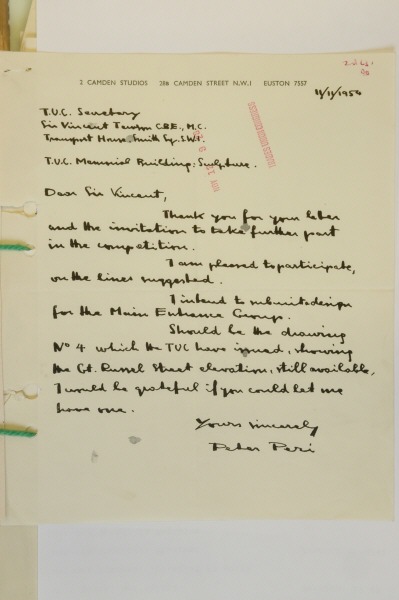 2 CAMDEN STUDIOS 286 CAMDEN STREET N.W.1 EUSTON 7557
11/11/1954
T.U.C. Secretary
Sir Vincent Tewson C.B.E., M.C.
Transport House, Smith Sq. S.W.1.
T.U.C. Memorial Building: Sculpture.
Dear Sir Vincent,
Thank you for your letter
and the invitation to take further part
in the competition.
I am pleased to participate,
on the lines suggested.
I intend to submit a design
for the Main Entrance Group.
Should be the drawing
No 4 which the TUC have issued, showing
the Gt. Russel Street elevation, still available,
I would be grateful if you could let me
have one.
Yours sincerely
Peter Peri